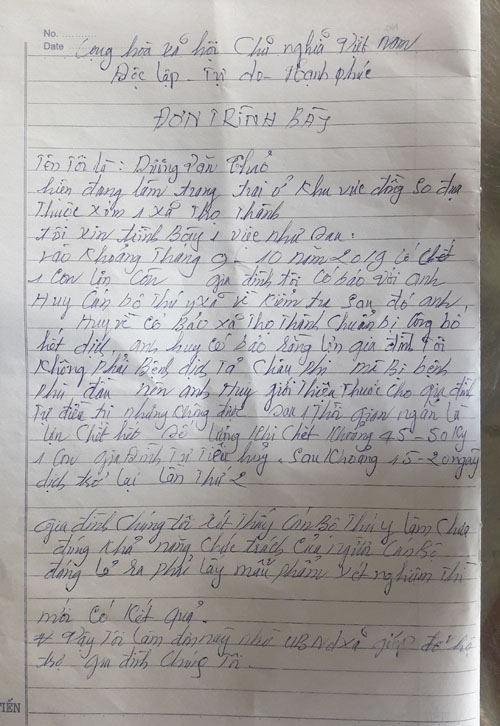 No.
Date
Cộng hòa xã hội Chủ nghĩa Việt Nam
Độc lập - Tự do - Hạnh phúc
ĐƠN TRÌNH BÀY
Tên Tôi là : Dương Văn
hiện đang làm trang Trại ở Khu vực đồng
Thuộc xóm 1 xã Thọ Thành
Tôi xin trình Bày 1 việc như Sau:
vào Khoảng Tháng 9 - 10 năm 2019 có chết
1 con lợn gia đình tôi có báo với anh
Huy Cán bộ Thú y xã về Kiểm tra Sau đó anh
Huy về có Báo xã Thọ Thành Chuẩn bị Công bố
hết dịch, anh huy có bảo rằng lợn gia đình Tôi
Không Phải Bệnh dịch Tả Châu Phi mà Bị bệnh
Phù đầu nên anh Huy giới Thiệu Thuốc cho gia đình
Tự điều trị nhưng Sau 1 Thời gian ngắn là
lợn Chết hết Số lượng Khi Chết Khoảng 45-50 Kg
1 Con gia Đình Tự Tiêu hủy. Sau Khoảng 15-20 ngày
dịch trở lại lần Thứ 2
gia đình Chúng tôi xét Thấy Cán Bộ Thú y làm Chưa
đúng Khả năng Chức trách Của người Cán Bộ
đáng lẽ ra phải lấy mẫu phẩm xét nghiệm Thì
mới có Kết quả.
* Vậy Tôi làm đơn này nhờ UBND xã giúp đỡ hỗ
trợ gia đình Chúng Tôi.
TIẾN